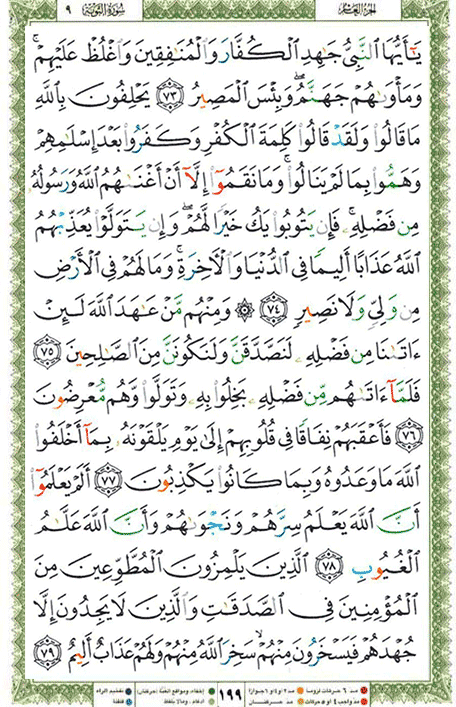 الجزء العاشر سورة التوبة ٩
يَٰٓأَيُّهَا ٱلنَّبِيُّ جَٰهِدِ ٱلۡكُفَّارَ وَٱلۡمُنَٰفِقِينَ وَٱغۡلُظۡ عَلَيۡهِمۡۚ
وَمَأۡوَىٰهُمۡ جَهَنَّمُۖ وَبِئۡسَ ٱلۡمَصِيرُ ٧٣ يَحۡلِفُونَ بِٱللَّهِ
مَا قَالُواْ وَلَقَدۡ قَالُواْ كَلِمَةَ ٱلۡكُفۡرِ وَكَفَرُواْ بَعۡدَ إِسۡلَٰمِهِمۡ
وَهَمُّواْ بِمَا لَمۡ يَنَالُواْۚ وَمَا نَقَمُوٓاْ إِلَّآ أَنۡ أَغۡنَىٰهُمُ ٱللَّهُ وَرَسُولُهُۥ
مِن فَضۡلِهِۦۚ فَإِن يَتُوبُواْ يَكُ خَيۡرٗا لَّهُمۡۖ وَإِن يَتَوَلَّوۡاْ يُعَذِّبۡهُمُ
ٱللَّهُ عَذَابًا أَلِيمٗا فِي ٱلدُّنۡيَا وَٱلۡأٓخِرَةِۚ وَمَا لَهُمۡ فِي ٱلۡأَرۡضِ
مِن وَلِيّٖ وَلَا نَصِيرٖ ٧٤ ۞ وَمِنۡهُم مَّنۡ عَٰهَدَ ٱللَّهَ لَئِنۡ
ءَاتَىٰنَا مِن فَضۡلِهِۦ لَنَصَّدَّقَنَّ وَلَنَكُونَنَّ مِنَ ٱلصَّٰلِحِينَ ٧٥
فَلَمَّآ ءَاتَىٰهُم مِّن فَضۡلِهِۦ بَخِلُواْ بِهِۦ وَتَوَلَّواْ وَّهُم مُّعۡرِضُونَ
٧٦ فَأَعۡقَبَهُمۡ نِفَاقٗا فِي قُلُوبِهِمۡ إِلَىٰ يَوۡمِ يَلۡقَوۡنَهُۥ بِمَآ أَخۡلَفُواْ
ٱللَّهَ مَا وَعَدُوهُ وَبِمَا كَانُواْ يَكۡذِبُونَ ٧٧ أَلَمۡ يَعۡلَمُوٓاْ
أَنَّ ٱللَّهَ يَعۡلَمُ سِرَّهُمۡ وَنَجۡوَىٰهُمۡ وَأَنَّ ٱللَّهَ عَلَّٰمُ
ٱلۡغُيُوبِ ٧٨ ٱلَّذِينَ يَلۡمِزُونَ ٱلۡمُطَّوِّعِينَ مِنَ
ٱلۡمُؤۡمِنِينَ فِي ٱلصَّدَقَٰتِ وَٱلَّذِينَ لَا يَجِدُونَ إِلَّا
جُهۡدَهُمۡ فَيَسۡخَرُونَ مِنۡهُمۡ سَخِرَ ٱللَّهُ مِنۡهُمۡ وَلَهُمۡ عَذَابٌ أَلِيمٌ ٧٩
١٩٩